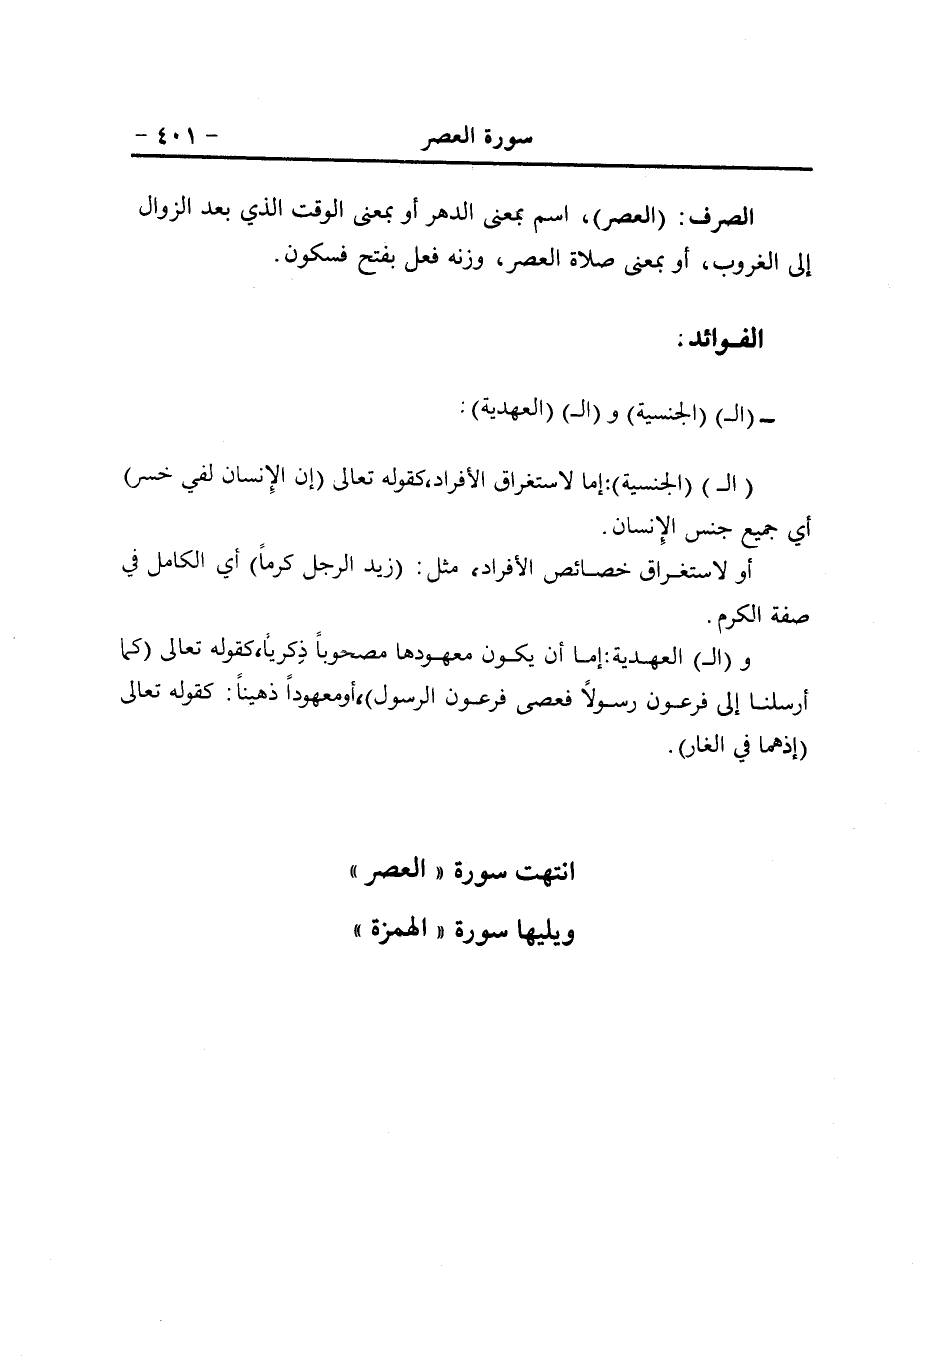 سورة العصر - ٤٠١ -
الصرف: (العصر)، اسم بمعنى الدهر أو بمعنى الوقت الذي بعد الزوال
إلى الغروب، أو بمعنى صلاة العصر، وزنه فعل بفتح فسكون.
الفـوائد:
ـ (الـ) (الجنسية) و (الـ) (العهدية):
( الـ ) (الجنسية):إما لاستغراق الأفراد،كقوله تعالى (إن الإنسان لفي خسر)
أي جميع جنس الإنسان.
أو لاستغـراق خصـائص الأفراد، مثل: (زيد الرجل كرماً) أي الكامل في
صفة الكرم.
و (الـ) العهـدية:إمـا أن يكـون معهـودها مصحوباً ذِكرياً،كقوله تعالى (كما
أرسلنـا إلى فرعـون رسـولاً فعصى فرعـون الرسول)،أومعهوداً ذهيناً: كقوله تعالى
(إذهما في الغار).
انتهت سورة « العصر »
ويليها سورة « الهمزة »